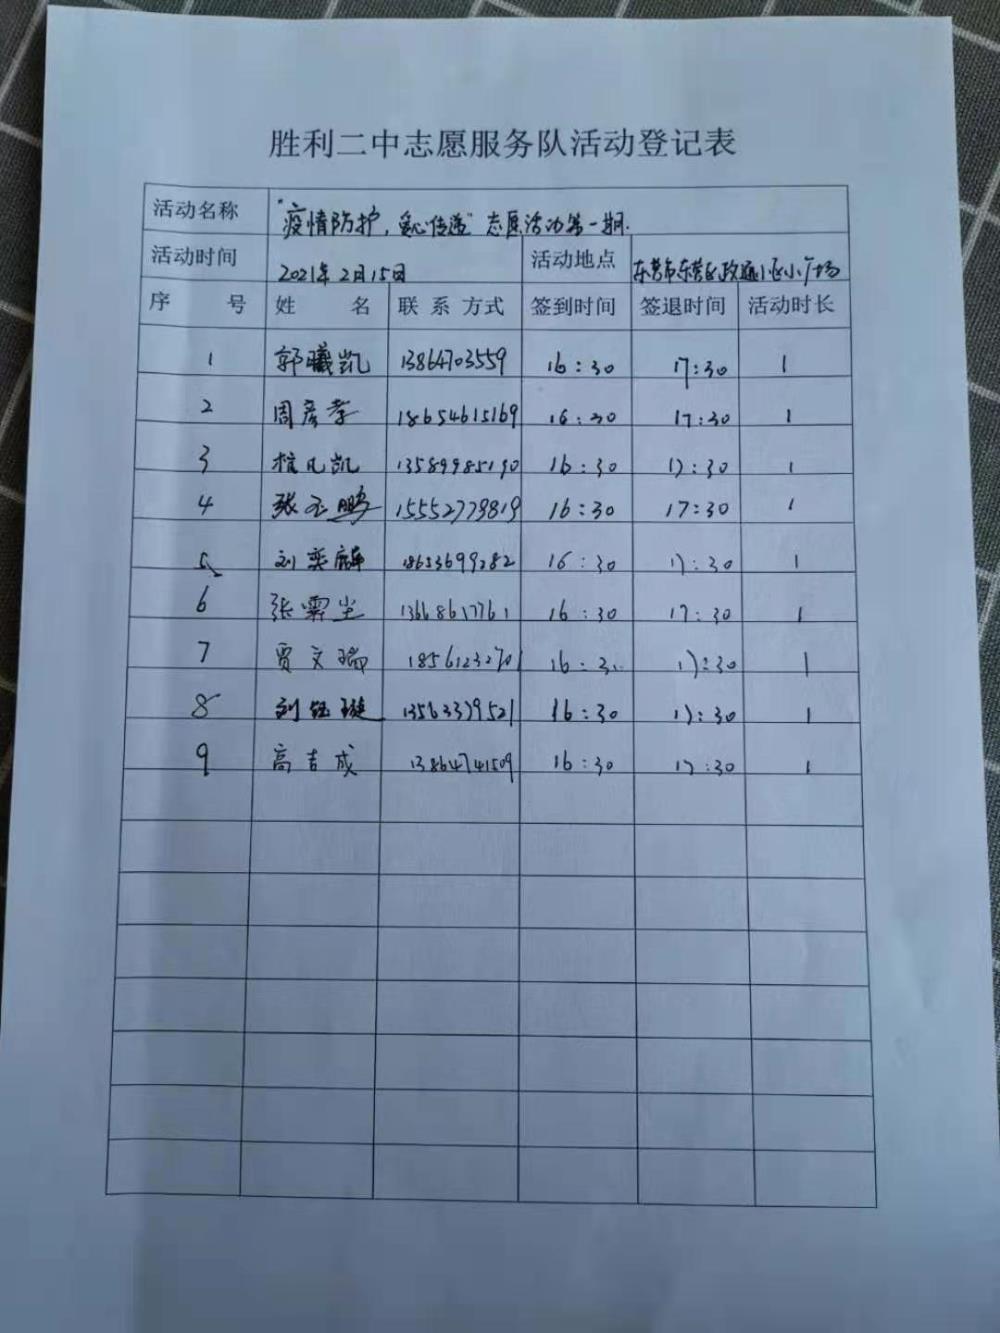 胜利二中志愿服务队活动登记表
活动名称 "疫情防护,爱心传递"志愿活动第一期.
活动时间 2021年2月15日 活动地点 东营市东营区政通小区小广场
序 号 姓 名 联 系 方式 签到时间 签退时间 活动时长
1 郭曦凯 13864703559 16:30 17:30 1
2 周彦孝 18654615169 16:30 17:30 1
3 凡凯 13589985190 16:30 17:30 1
4 张丕鹏 15552779819 16:30 17:30 1
5 刘奕麟 18653699282 16:30 17:30 1
6 张霁尘 13668617761 16:30 17:30 1
7 贾文瑞 18561232701 16:30 17:30 1
8 刘钰璇 13563379521 16:30 17:30 1
9 高吉成 13864741509 16:30 17:30 1